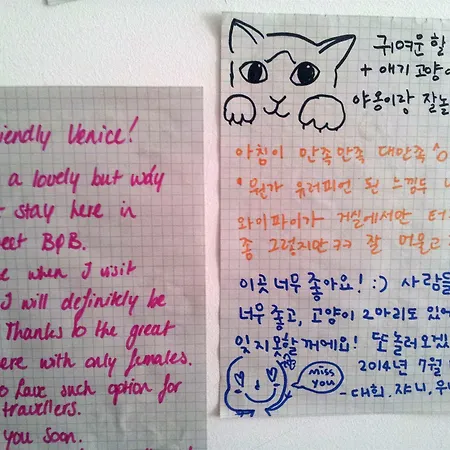 iendly Venice!
a lovely but way
stay here in
eet B&B.
when I visit
I will definitely be
Thanks to the great
ere with only females.
o have such option for
travellers.
you soon.
귀여운 할
+ 애기 고양이
야옹이랑 잘놀
아침이 만족만족 대만족^o
뭔가 유러피언 된 느낌두 나
와이파이가 거실에서만 터
좀 그렇지만ㅋㅋ 잘 머물고
이곳 너무 좋아요! :) 사람들
너무 좋고, 고양이 2마리도 있어
잊지 못할 꺼에요! 또 놀러 오겠
miss you
2014년 7월
- 대희, 쟈니, 우